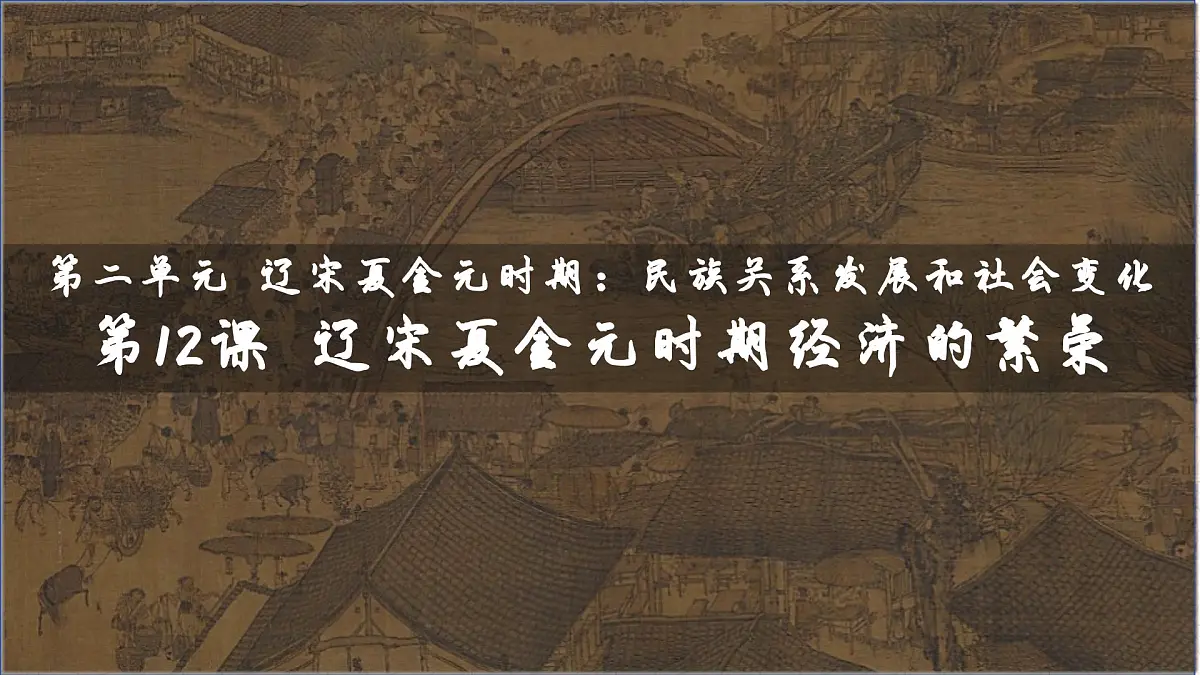 第二单元 辽宋夏金元时期：民族关系发展和社会变化
第12课 辽宋夏金元时期经济的繁荣